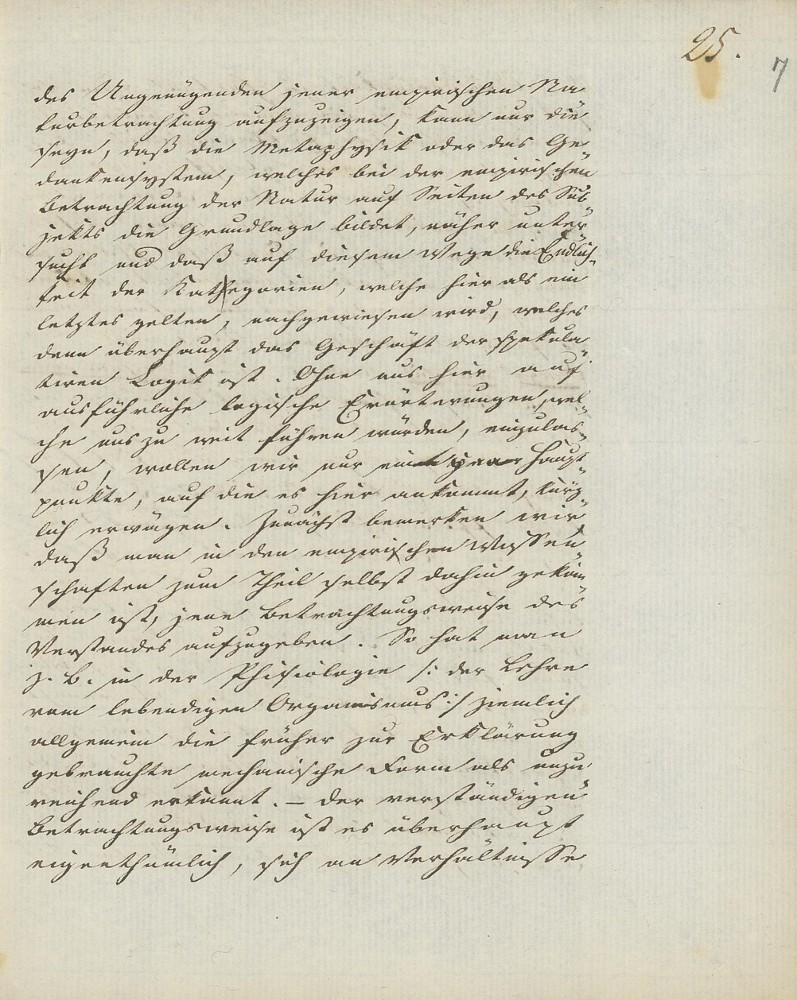 25.
7
des Ungenügenden jener empirischen Na
turbetrachtung aufzuzeigen, kann nur die
seyn, daß die Metaphysik oder das Ge
dankensystem, welches bei der empirischen
Betrachtung der Natur auf Seiten des Sub
jekts die Grundlage bildet, näher unter
sucht und daß auf diesem Wege die Endlich
keit der Kathegorien, welche hier als ein
letztes gelten, nachgewiesen wird, welches
denn überhaupt das Geschäft der spekula
tiven Logik ist. Ohne uns hier auf
ausführliche logische Erörterungen, wel
che uns zu weit führen würden, einzulas
sen, wollen wir nur ein paar Haupt
punkte, auf die es hier ankommt, kürz
lich erwägen. Zunächst bemerken wir
daß man in den empirischen Wissen
schaften zum Theil selbst dahin gekom
men ist, jene Betrachtungsweise des
Verstandes aufzugeben. So hat man
z. B. in der Phisiologie /: der Lehre
vom lebendigen Organismus :/ ziemlich
allgemein die früher zur Erklärung
gebrauchte mechanische Form als unzu
reichend erkannt. – Der verständigen
Betrachtungsweise ist es überhaupt
eigenthümlich, sich an Verhältnisse